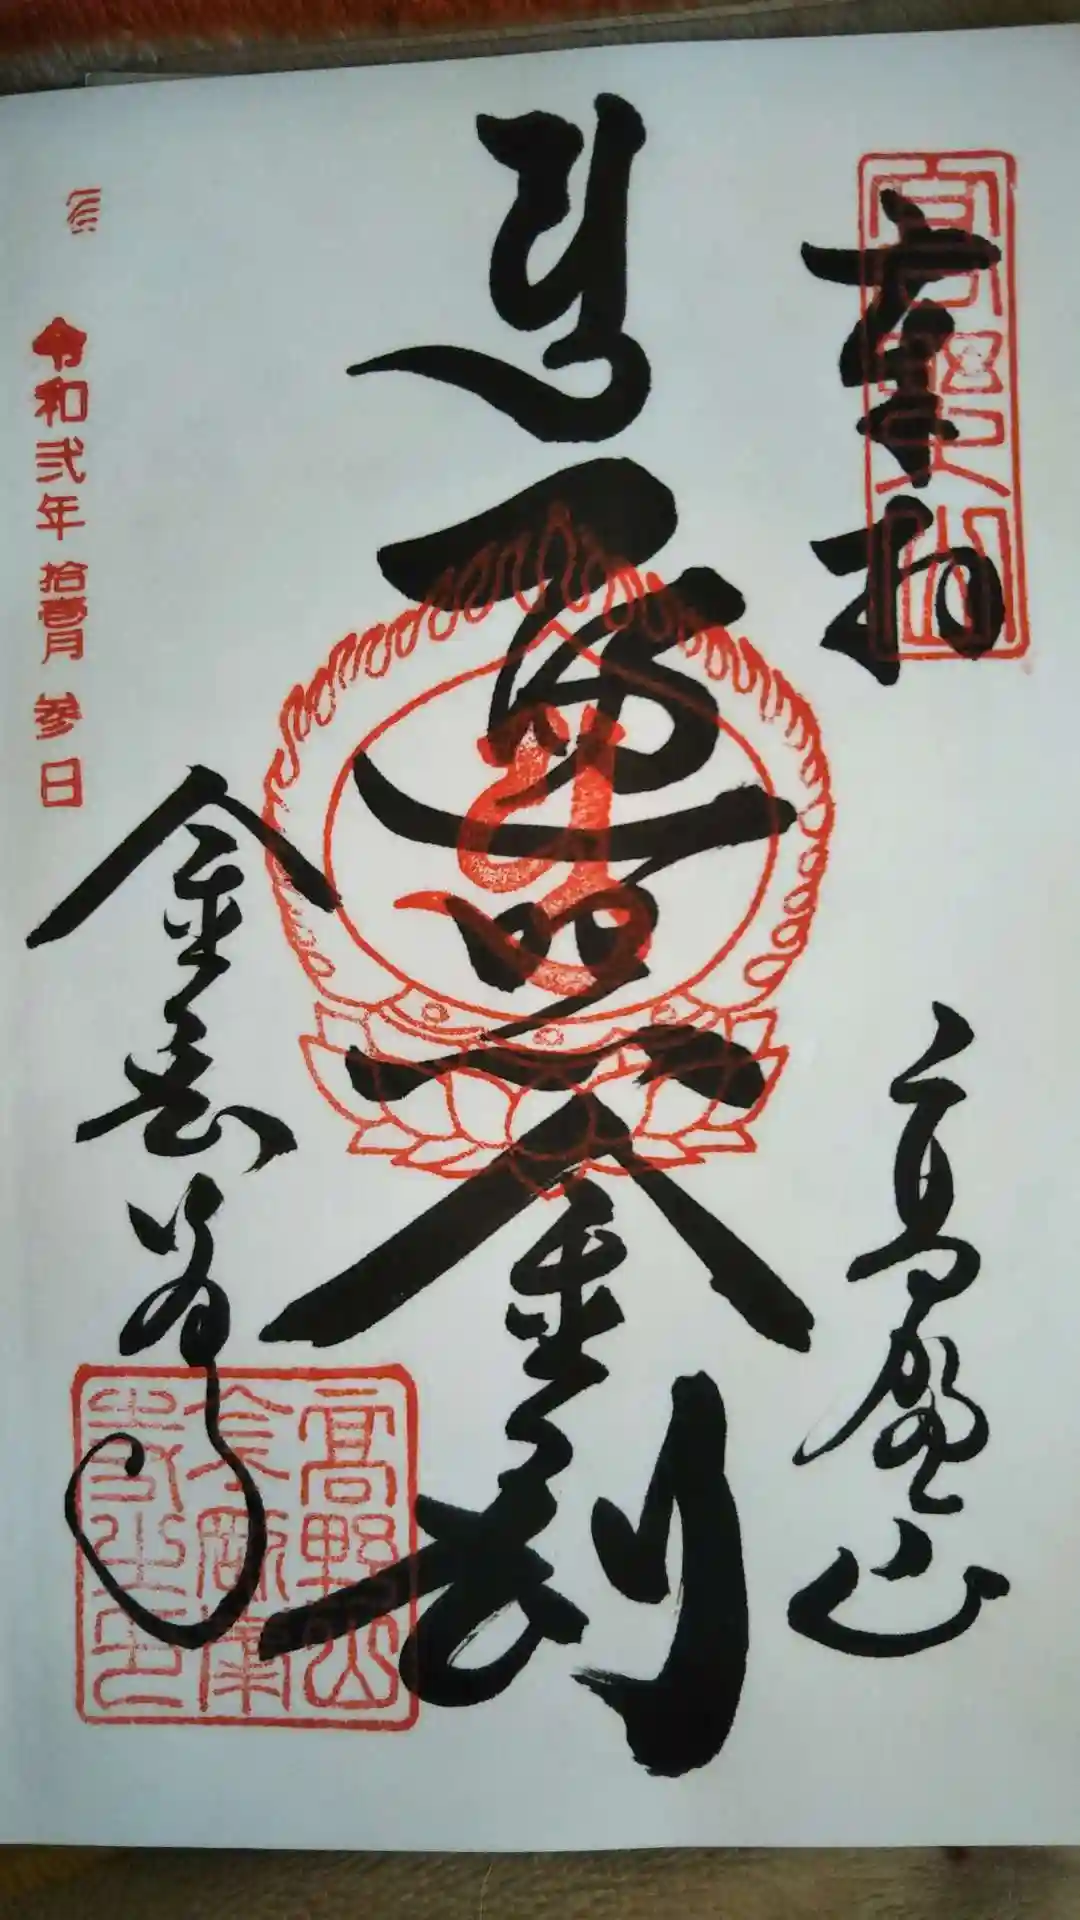 奉拝
高野山
高野山
遍照金剛
金剛峯寺
高野山
金剛峯
寺之印
令和弐年拾壹月参日